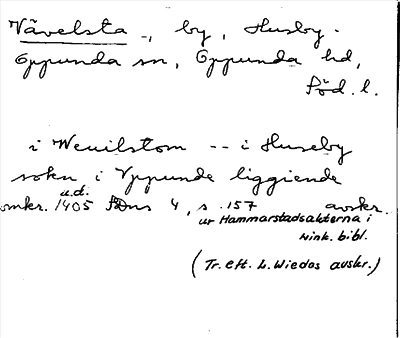 Vävelsta -, by, Husby-
Oppunda sn, Oppunda hd,
Söd. l.
i Weuilstom -- i Huseby
sokn i Vppunde liggiende
u.d.
omkr. 1405 Sfms 4, s. 157 avskr.
ur Hammarstadsakterna i
Link. bibl.
(Tr. eft. L. Wiedes avskr.)